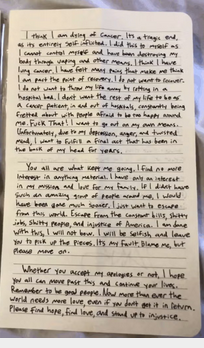 I think I am dying of cancer. It's a tragic end,
as its entirely self inflicted. I did this to myself as
I cannot control myself and have been destroying my
body through vaping and other means. I think I have
lung cancer. I have felt many pains that make me think
I am past the point of recovery. I do not want to recover.
I do not want to throw my life away by rotting in a
hospital bed. I don't want the rest of my life to be as
a cancer patient, in and out of hospitals, constantly being
fretted about with people afraid to be too happy around
me. Fuck that! I want to go out on my own means.
Unfortunately, due to my depression, anger, and twisted
mind, I want to fulfill a final act that has been in
the back of my head for years.
You all are what kept me going. I find no more
interest in anything material. I have only an interest
in my mission and love for my family. If I didn't have
such an amazing group of people around me, I would
have been gone much sooner. I just want to escape
from this world. Escape from the constant bills, shitty
jobs, shitty people, and injustice of America. I am done
with this, I will not bow. I will be selfish and leave
you to pick up the pieces. Its my fault. Blame me, but
please move on.
Whether you accept my apologies or not, I hope
you all can move past this and continue your lives.
Remember to be good people. Now more than ever the
world needs more love, even if you don't get it in return.
Please find hope, find love, and stand up to injustice.